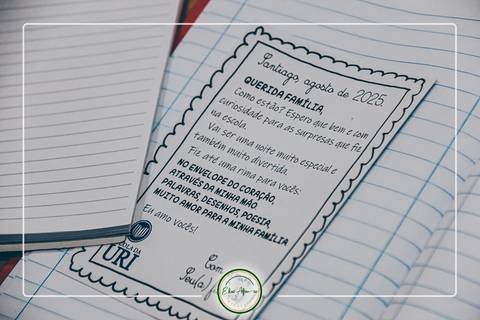 Santiago, agosto de 2025.
QUERIDA FAMÍLIA
Como estão? Espero que bem e com
curiosidade para as surpresas que fiz
na escola.
Vai ser uma noite muito especial e
também muito divertida.
Fiz até uma rima para vocês:
NO ENVELOPE DO CORAÇÃO,
ATRAVÉS DA MINHA MÃO
PALAVRAS, DESENHOS, POESIA
MUITO AMOR PARA A MINHA FAMÍLIA
Eu amo vocês!
Com
URI